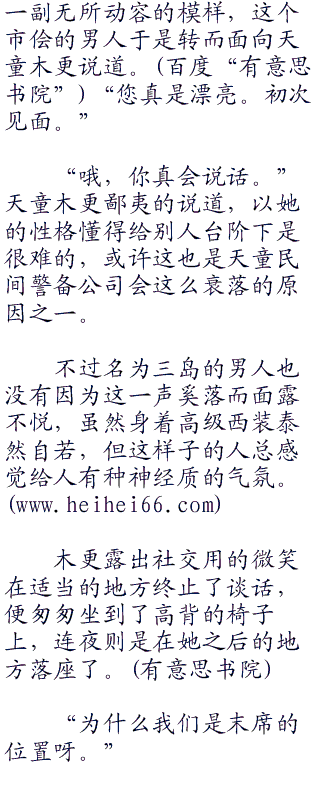 一副无所动容的模样，这个
市侩的男人于是转而面向天
童木更说道。(百度“有意思
书院”) “您真是漂亮。初次
见面。”
“哦，你真会说话。”
天童木更鄙夷的说道，以她
的性格懂得给别人台阶下是
很难的，或许这也是天童民
间警备公司会这么衰落的原
因之一。
不过名为三岛的男人也
没有因为这一声奚落而面露
不悦，虽然身着高级西装泰
然自若，但这样子的人总感
觉给人有种神经质的气氛。
(www.heihei66.com)
木更露出社交用的微笑
在适当的地方终止了谈话，
便匆匆坐到了高背的椅子
上，连夜则是在她之后的地
方落座了。(有意思书院)
“为什么我们是末席的
位置呀。”